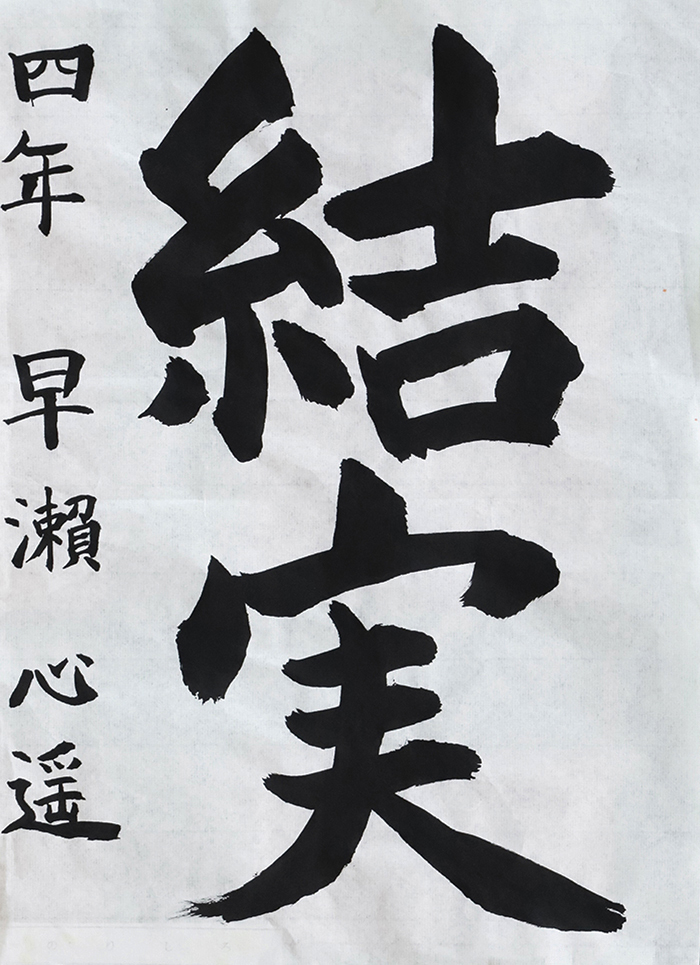 結実
四年 早瀬 心遥